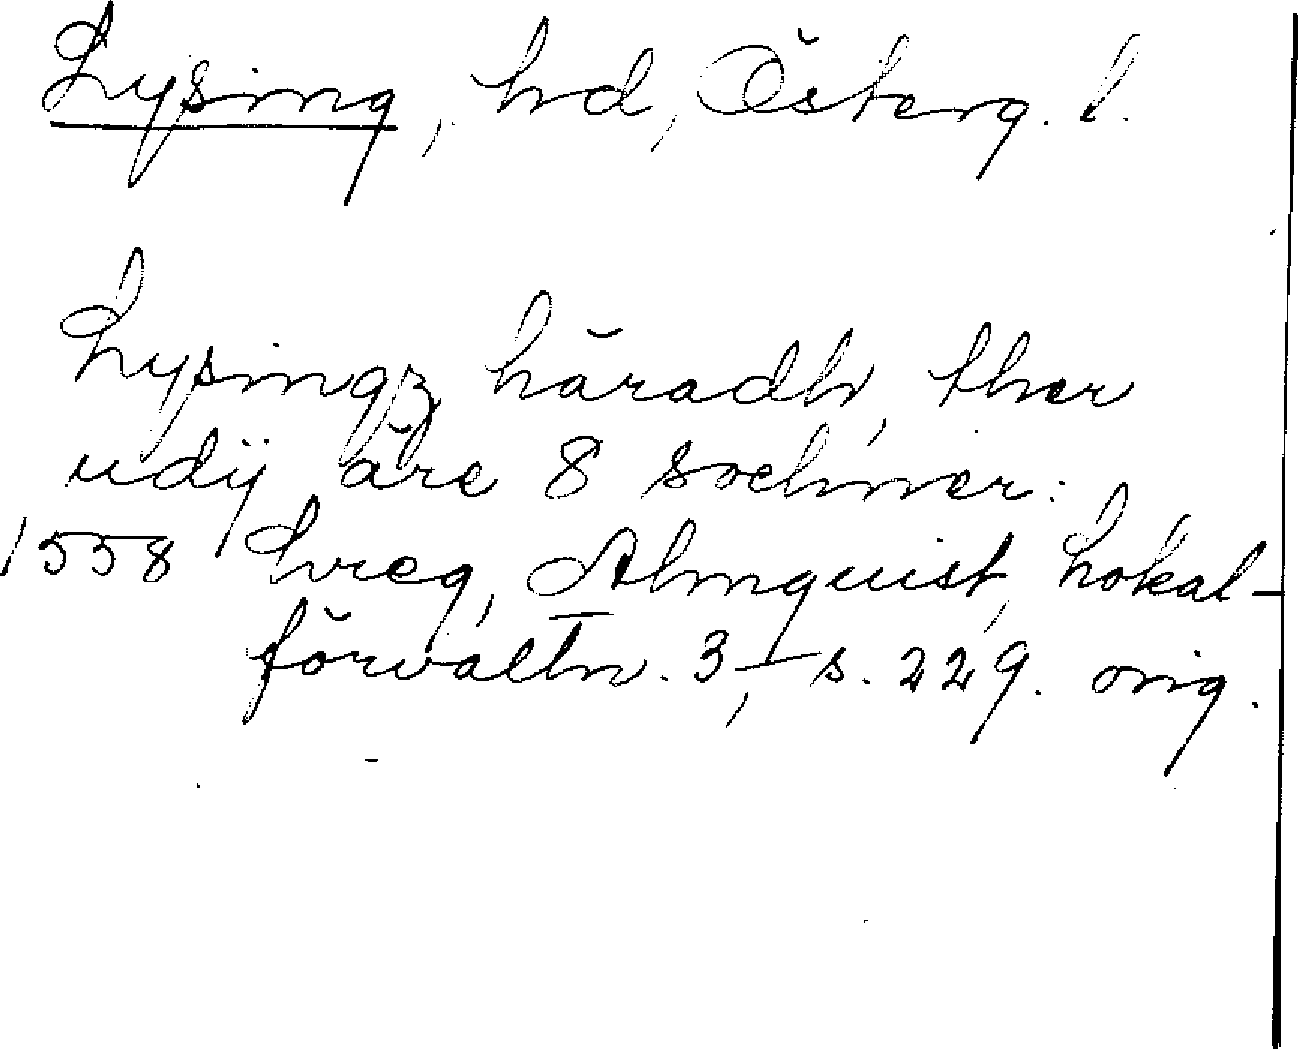 Lysing, hd, Österg. l.
Lysingz häradh, ther
udÿ äre 8 sochner:
1558 Lreg, Almquist, Lokal-
förvaltn. 3, I s. 229. orig.